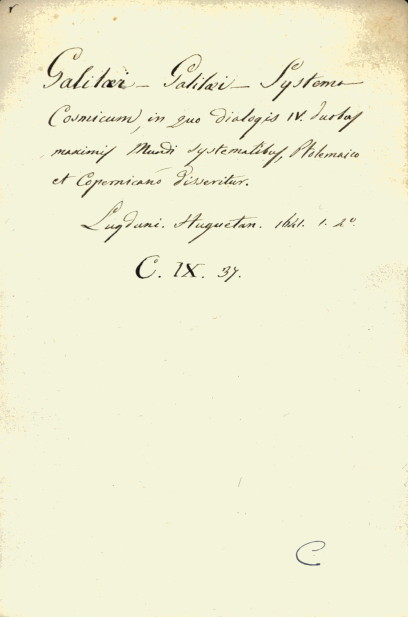 Galilæi – Galilæi – Systema
Cosmicum, in quo dialogis IV. duobus
maximis Mundi systematibus, Ptolemaico
et Copernicano disseritur.
Lugduni. Huguetan. 1641. 1. 4°.
C. IX. 37.
C